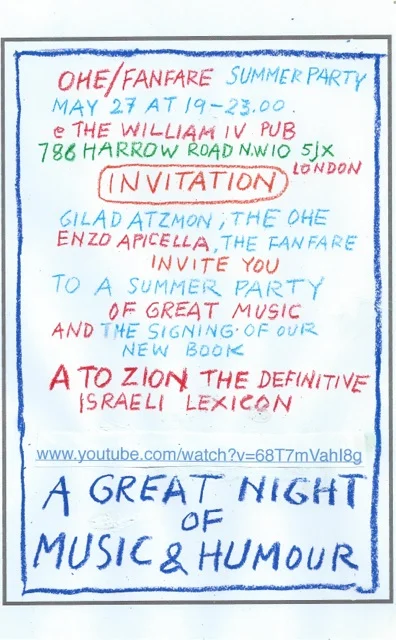 OHE/FANFARE SUMMER PARTY
MAY 27 AT 19-23.00.
@ THE WILLIAM IV PUB
786 HARROW ROAD NW10 5JX
LONDON
INVITATION
GILAD ATZMON; THE OHE
ENZO APICELLA, THE FANFARE
INVITE YOU
TO A SUMMER PARTY
OF GREAT MUSIC
AND THE SIGNING OF OUR
NEW BOOK
A TO ZION THE DEFINITIVE
ISRAELI LEXICON
www.youtube.com/watch?v=68T7mVahI8g
A GREAT NIGHT
OF
MUSIC & HUMOUR